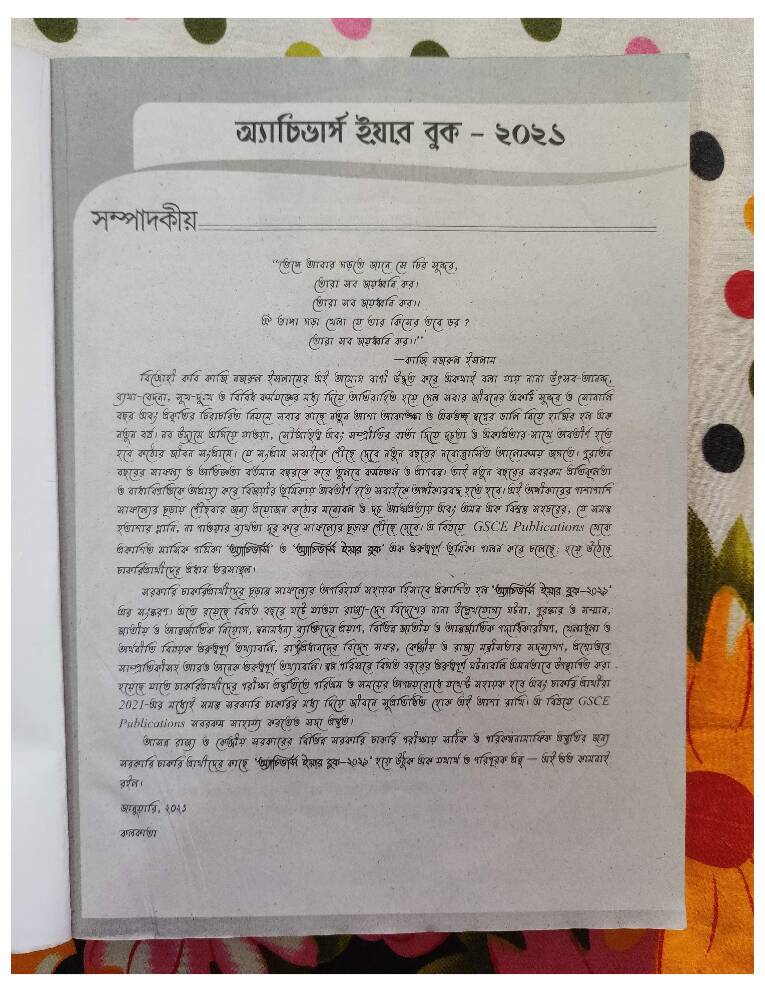 অ্যাচিভার্স ইয়ার বুক – ২০২১
সম্পাদকীয়
“ভেঙ্গে আবার গড়তে জানে সে চির সুন্দর,
তোরা সব জয়ধ্বনি কর।
তোরা সব জয়ধ্বনি কর।।
ঐ ভাঙ্গা গড়া খেলা যে তার কিসের তবে ডর ?
তোরা সব জয়ধ্বনি কর।।”
—কাজি নজরুল ইসলাম
বিদ্রোহী কবি কাজি নজরুল ইসলামের এই অমোঘ বাণী উদ্ধৃত করে একথাই বলা যায় নানা উৎসব-আনন্দ,
ব্যথা-বেদনা, সুখ-দুঃখ ও বিবিধ কর্মযজ্ঞের মধ্য দিয়ে অতিবাহিত হয়ে গেল সবার জীবনের একটি সুন্দর ও সোনালি
বছর এবং প্রকৃতির চিরাচরিত নিয়মে সবার কাছে নতুন আশা আকাঙ্ক্ষা ও একগুচ্ছ স্বপ্নের ডালি নিয়ে হাজির হল এক
নতুন বর্ষ। নব উদ্যমে এগিয়ে যাওয়া, সৌভ্রাতৃত্ব এবং সম্প্রীতির বার্তা নিয়ে দৃঢ়তা ও একাগ্রতার সাথে অবতীর্ণ হতে
হবে কঠোর জীবন সংগ্রামে। যে সংগ্রাম সবাইকে পৌঁছে দেবে নতুন বছরের নবোজ্জ্বলিত আলোকময় জগতে। পুরাতন
বছরের সাফল্য ও অভিজ্ঞতা বর্তমান বছরকে করে তুলবে কর্মচঞ্চল ও প্রাণবন্ত। তাই নতুন বছরের সবরকম প্রতিকূলতা
ও বাধাবিপত্তিকে অগ্রাহ্য করে বিজয়ীর ভূমিকায় অবতীর্ণ হতে সবাইকে অঙ্গীকারবদ্ধ হতে হবে। এই অঙ্গীকারের পাশাপাশি
সাফল্যের চূড়ায় পৌঁছবার জন্য প্রয়োজন কঠোর মনোবল ও দৃঢ় আত্মপ্রত্যয় এবং এমন এক বিশ্বস্ত সহচরের, যে সমস্ত
হতাশার গ্লানি, না পাওয়ার ব্যর্থতা দূর করে সাফল্যের চূড়ায় পৌঁছে দেবে। এ বিষয়ে GSCE Publications থেকে
প্রকাশিত মাসিক পত্রিকা ‘অ্যাচিভার্স’ ও ‘অ্যাচিভার্স ইয়ার বুক’ এক গুরুত্বপূর্ণ ভূমিকা পালন করে চলেছে; হয়ে উঠেছে
চাকরিপ্রার্থীদের প্রধান ভরসাস্থল।
সরকারি চাকরিপ্রার্থীদের চূড়ান্ত সাফল্যের অপরিহার্য সহায়ক হিসাবে প্রকাশিত হল ‘অ্যাচিভার্স ইয়ার বুক–২০২১’
এর সংস্করণ। এতে রয়েছে বিগত বছরে ঘটে যাওয়া রাজ্য-দেশ বিদেশের নানা উল্লেখযোগ্য ঘটনা, পুরস্কার ও সম্মান,
জাতীয় ও আন্তর্জাতিক নিয়োগ, স্বনামধন্য ব্যক্তিদের প্রয়াণ, বিভিন্ন জাতীয় ও আন্তর্জাতিক পদাধিকারীগণ, খেলাধুলা ও
অর্থনীতি বিষয়ক গুরুত্বপূর্ণ তথ্যাবলি, রাষ্ট্রপ্রধানদের বিদেশ সফর, কেন্দ্রীয় ও রাজ্য মন্ত্রীসভার সদস্যগণ, প্রশ্নোত্তরে
সাম্প্রতিকীসহ আরও অনেক গুরুত্বপূর্ণ তথ্যাবলি। স্বল্প পরিসরে বিগত বছরের গুরুত্বপূর্ণ ঘটনাবলি এমনভাবে উপস্থাপিত করা
হয়েছে যাতে চাকরিপ্রার্থীদের পরীক্ষা প্রস্তুতিতে পরিশ্রম ও সময়ের অপচয়রোধে যথেষ্ট সহায়ক হবে এবং চাকরি প্রার্থীরা
2021-এর মধ্যেই সমস্ত সরকারি চাকরির মধ্য দিয়ে জীবনে সুপ্রতিষ্ঠিত হোক এই আশা রাখি। এ বিষয়ে GSCE
Publications সবরকম সাহায্য করতেও সদা প্রস্তুত।
আসন্ন রাজ্য ও কেন্দ্রীয় সরকারের বিভিন্ন সরকারি চাকরি পরীক্ষায় সঠিক ও পরিকল্পনামাফিক প্রস্তুতির জন্য
সরকারি চাকরি প্রার্থীদের কাছে ‘অ্যাচিভার্স ইয়ার বুক–২০২১’ হয়ে উঠুক এক যথার্থ ও পরিপূরক গ্রন্থ — এই শুভ কামনাই
রইল।
জানুয়ারি, ২০২১
কলকাতা